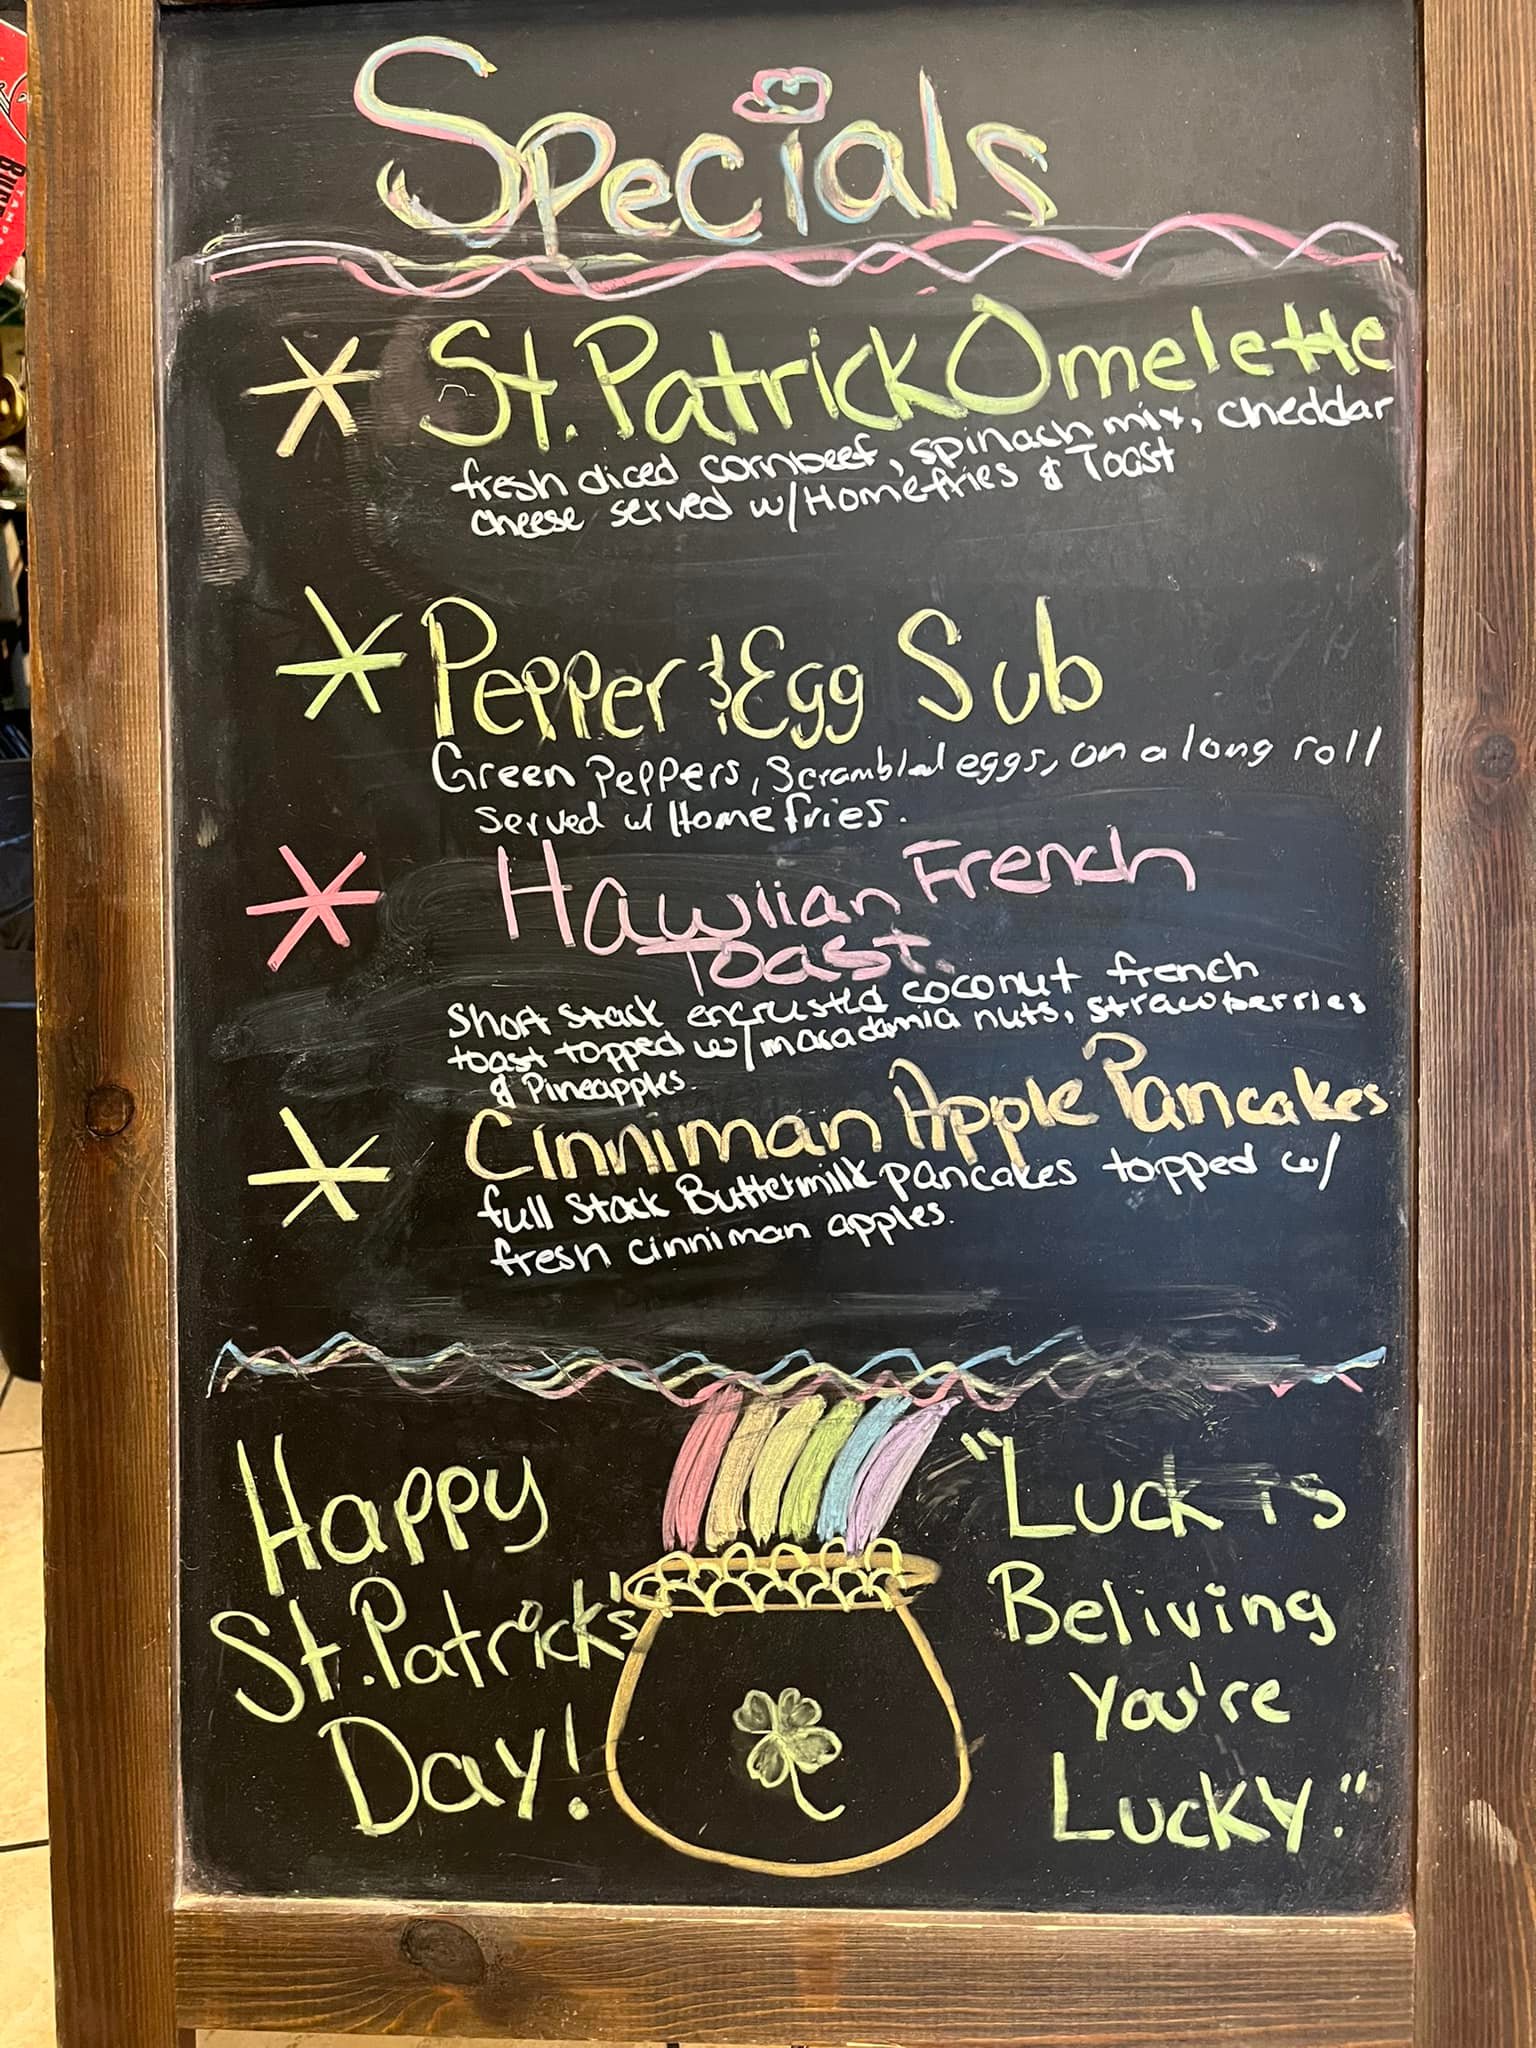 Specials
St. Patrick Omelette
fresh diced cornbeef, spinach mix, cheddar
cheese served w/Homefries & Toast
Pepper & Egg Sub
Green Peppers, Scrambled eggs, on a long roll
served w/ Homefries.
Hawiian French
Toast.
Short stack encrusted coconut french
toast topped w/macadamia nuts, strawberries
& Pineapples.
Cinniman Apple Pancakes
full stack Buttermilk pancakes topped w/
fresh cinniman apples.
Happy
St. Patrick's
Day!
"Luck is
Beliving
You're
Lucky."